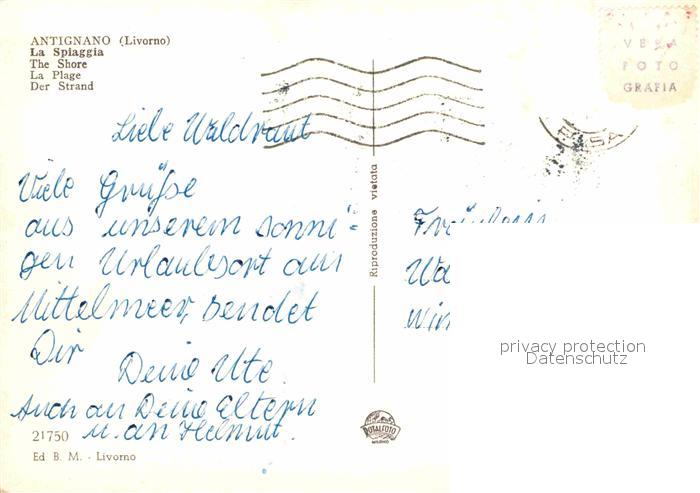 ANTIGNANO (Livorno)
La Spiaggia
The Shore
La Plage
Der Strand
VERA
FOTO
GRAFIA
Liebe Waldraut
Viele Grüße
aus unserem sonni-
gen Urlaubsort am
Mittelmeer, sendet
Dir
Deine Ute.
Auch an Deine Eltern
u. an Helmut.
21750
Ed B. M. - Livorno
Riproduzione vietata
Fräulein
Wa
Win
privacy protection
Datenschutz
ROTALFOTO
MILANO